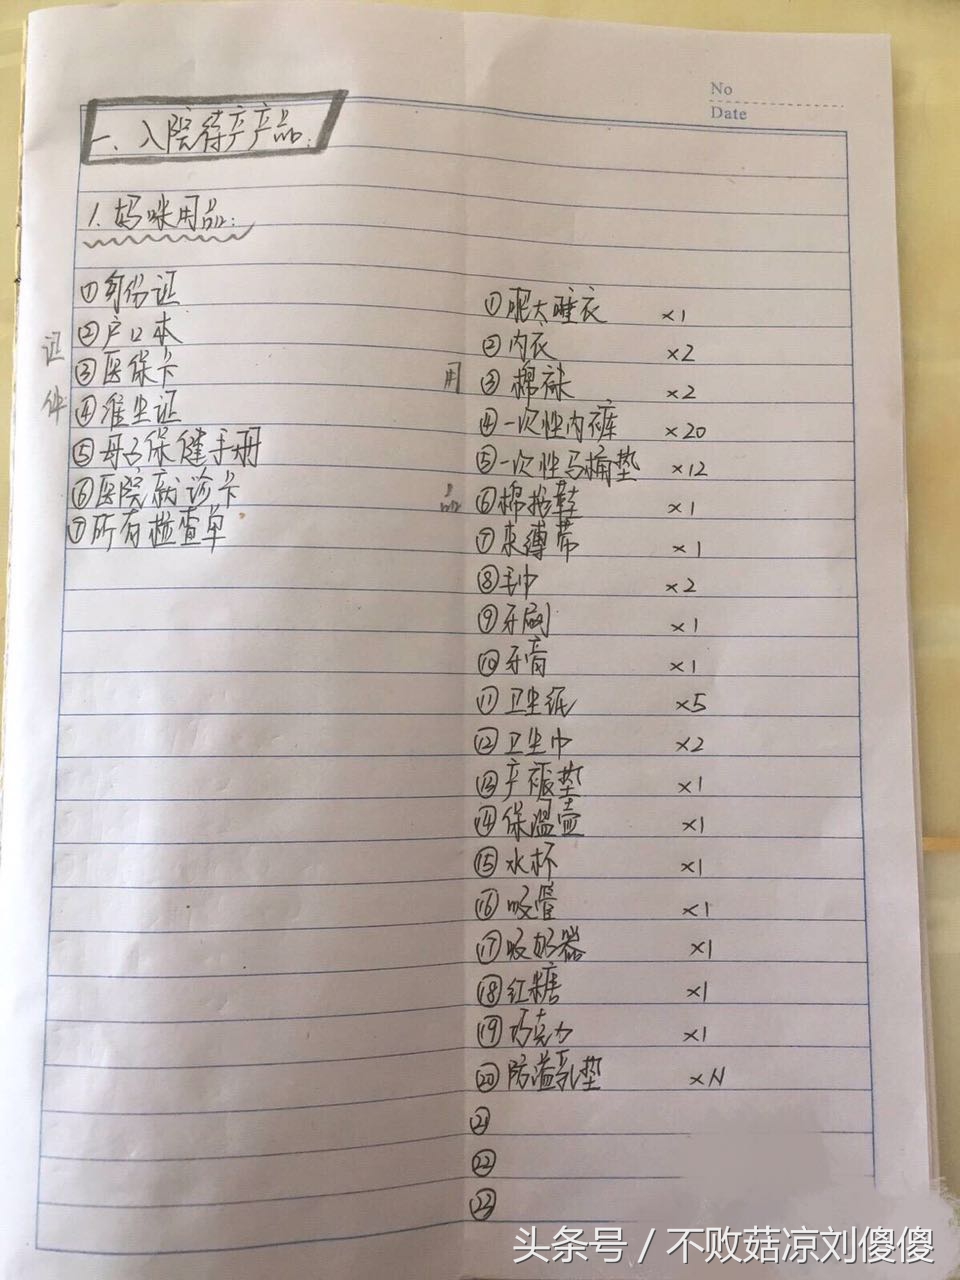 No
Date
一、入院待产产品:
1.妈咪用品:
证件
①身份证
②户口本
③医保卡
④准生证
⑤母子保健手册
⑥医院就诊卡
⑦所有检查单
用品
①肥大睡衣 ×1
②内衣 ×2
③棉袜 ×2
④一次性内裤 ×20
⑤一次性马桶垫 ×12
⑥棉拖鞋 ×1
⑦束缚带 ×1
⑧毛巾 ×2
⑨牙刷 ×1
⑩牙膏 ×1
⑪卫生纸 ×5
⑫卫生巾 ×2
⑬产褥垫 ×1
⑭保温壶 ×1
⑮水杯 ×1
⑯吸管 ×1
⑰吸奶器 ×1
⑱红糖 ×1
⑲巧克力 ×1
⑳防溢乳垫 ×N
㉑
㉒
㉓
头条号/不败菇凉刘傻傻